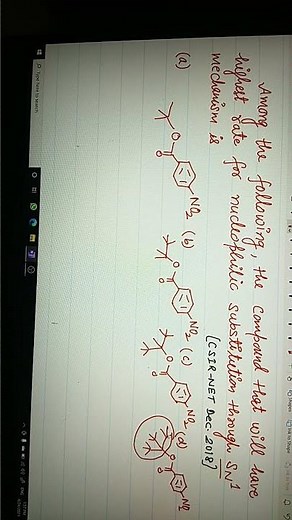 Among the following, the compound that will have
highest rate for nucleophilic substitution through SN1
mechanism is
[CSIR-NET Dec 2018]
(a)
O
O
NO2
(b)
O
O
NO2
(c)
O
O
NO2
(d)
O
O
NO2
Type here to search